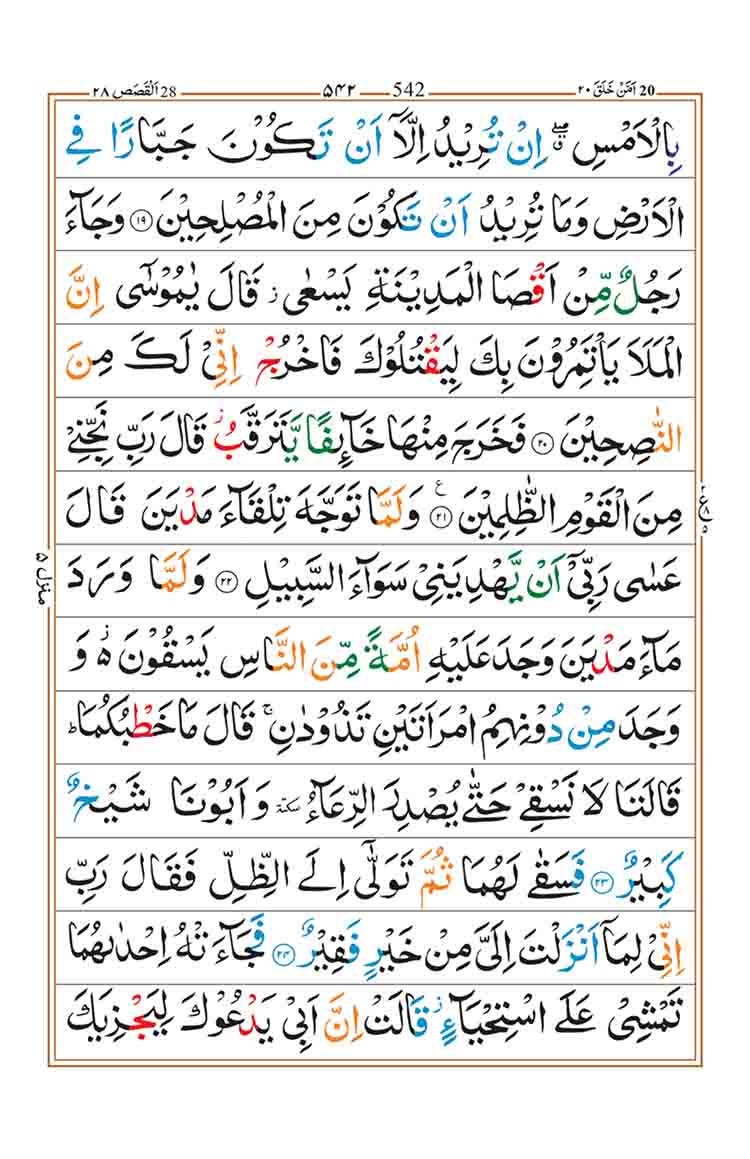 20 اَمَّنْ خَلَقَ ۲۰ 542 ۵۴۲ 28 اَلْقَصَص ۲۸
بِالْاَمْسِ ۖۗ اِنْ تُرِيْدُ اِلَّاۤ اَنْ تَكُوْنَ جَبَّارًا فِي
الْاَرْضِ وَمَا تُرِيْدُ اَنْ تَكُوْنَ مِنَ الْمُصْلِحِيْنَ ۝۱۹ وَجَآءَ
رَجُلٌ مِّنْ اَقْصَا الْمَدِيْنَةِ يَسْعٰى ز قَالَ يٰمُوْسٰۤى اِنَّ
الْمَلَاَ يَاْتَمِرُوْنَ بِكَ لِيَقْتُلُوْكَ فَاخْرُجْ اِنِّيْ لَكَ مِنَ
النّٰصِحِيْنَ ۝۲۰ فَخَرَجَ مِنْهَا خَآئِفًا يَّتَرَقَّبُ ز قَالَ رَبِّ نَجِّنِيْ
مِنَ الْقَوْمِ الظّٰلِمِيْنَ ۝۲۱ ع وَلَمَّا تَوَجَّهَ تِلْقَآءَ مَدْيَنَ قَالَ
عَسٰى رَبِّيْۤ اَنْ يَّهْدِيَنِيْ سَوَآءَ السَّبِيْلِ ۝۲۲ وَلَمَّا وَرَدَ
مَآءَ مَدْيَنَ وَجَدَ عَلَيْهِ اُمَّةً مِّنَ النَّاسِ يَسْقُوْنَ ۵ ز وَ
وَجَدَ مِنْ دُوْنِهِمُ امْرَاَتَيْنِ تَذُوْدٰنِ ج قَالَ مَا خَطْبُكُمَا ط
قَالَتَا لَا نَسْقِيْ حَتّٰى يُصْدِرَ الرِّعَآءُ سكتة وَاَبُوْنَا شَيْخٌ
كَبِيْرٌ ۝۲۳ فَسَقٰى لَهُمَا ثُمَّ تَوَلّٰۤى اِلَى الظِّلِّ فَقَالَ رَبِّ
اِنِّيْ لِمَاۤ اَنْزَلْتَ اِلَيَّ مِنْ خَيْرٍ فَقِيْرٌ ۝۲۴ فَجَآءَتْهُ اِحْدٰىهُمَا
تَمْشِيْ عَلَى اسْتِحْيَآءٍ ز قَالَتْ اِنَّ اَبِيْ يَدْعُوْكَ لِيَجْزِيَكَ
منزل ۵